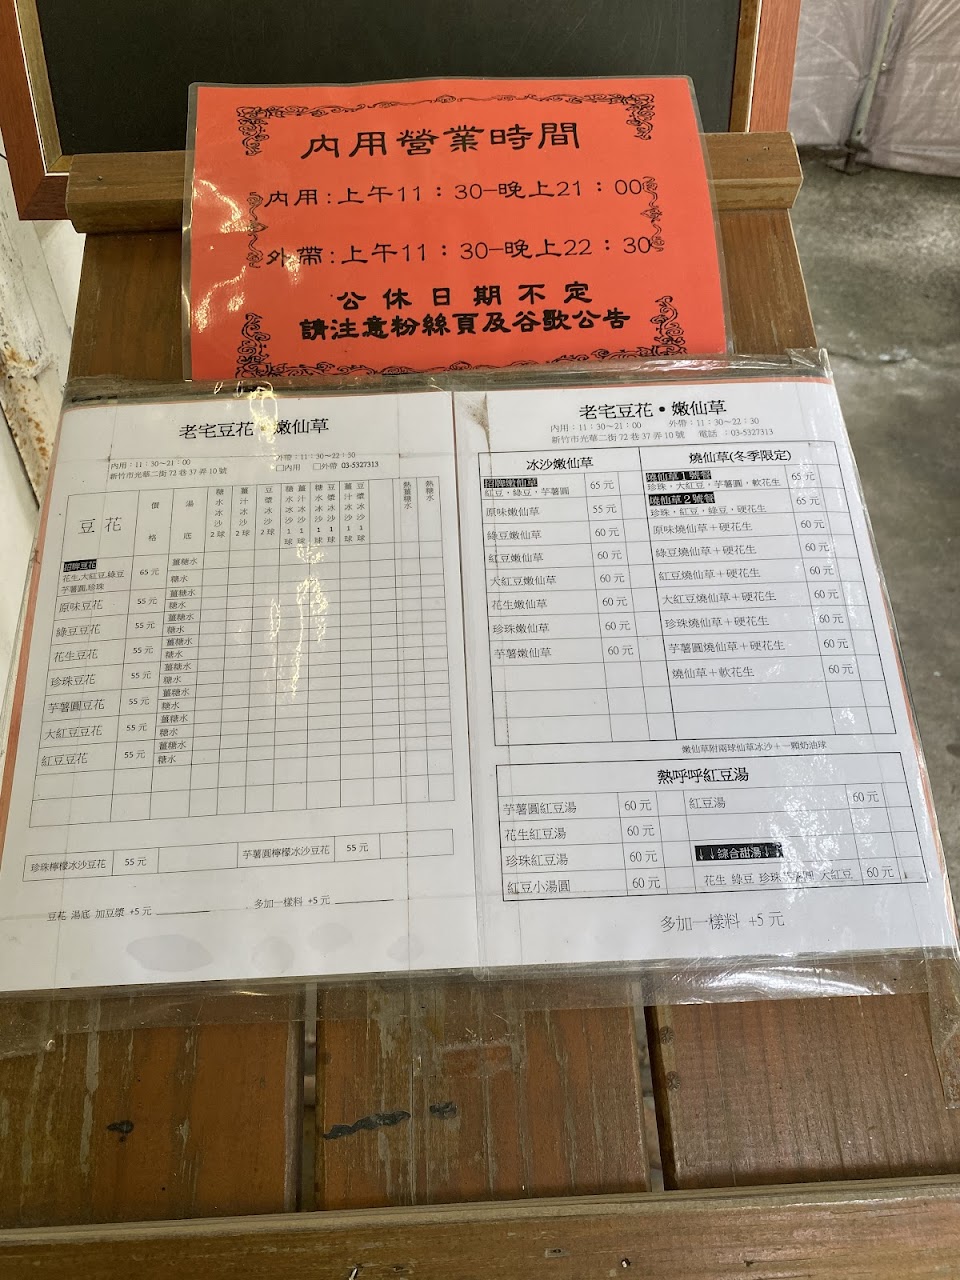 內用營業時間
內用:上午11：30-晚上21：00
外帶:上午11：30-晚上22：30
公休日期不定
請注意粉絲頁及谷歌公告
老宅豆花•嫩仙草
內用：11：30～21：00 外帶：11：30～22：30
新竹市光華二街72巷37弄10號 □內用 □外帶 03-5327313
豆花 價格 湯底 糖水冰沙2球 薑汁冰沙2球 豆漿冰沙2球 糖水冰沙1球 薑汁冰沙1球 熱薑糖水 熱糖水
招牌豆花
花生,大紅豆,綠豆
芋薯圓,珍珠 65元 薑糖水 糖水
原味豆花 55元 薑糖水 糖水
綠豆豆花 55元 薑糖水 糖水
花生豆花 55元 薑糖水 糖水
珍珠豆花 55元 薑糖水 糖水
芋薯圓豆花 55元 薑糖水 糖水
大紅豆豆花 55元 薑糖水 糖水
紅豆豆花 55元 薑糖水 糖水
珍珠檸檬冰沙豆花 55元 芋薯圓檸檬冰沙豆花 55元
豆花 湯底 加豆漿 +5元 多加一樣料 +5元
老宅豆花•嫩仙草
內用：11：30～21：00 外帶：11：30～22：30
新竹市光華二街72巷37弄10號 電話 ：03-5327313
冰沙嫩仙草
招牌嫩仙草
紅豆，綠豆，芋薯圓 65元
原味嫩仙草 55元
綠豆嫩仙草 60元
紅豆嫩仙草 60元
大紅豆嫩仙草 60元
花生嫩仙草 60元
珍珠嫩仙草 60元
芋薯嫩仙草 60元
燒仙草(冬季限定)
燒仙草1號餐
珍珠，大紅豆，芋薯圓，軟花生 65元
燒仙草2號餐
珍珠，紅豆，綠豆，硬花生 65元
原味燒仙草＋硬花生 60元
綠豆燒仙草＋硬花生 60元
紅豆燒仙草＋硬花生 60元
大紅豆燒仙草＋硬花生 60元
珍珠燒仙草＋硬花生 60元
芋薯圓燒仙草＋硬花生 60元
燒仙草＋軟花生 60元
嫩仙草附兩球仙草冰沙＋一顆奶油球
熱呼呼紅豆湯
芋薯圓紅豆湯 60元 紅豆湯 60元
花生紅豆湯 60元
珍珠紅豆湯 60元 ↓↓綜合甜湯↓↓
紅豆小湯圓 60元 花生 綠豆 珍珠 大紅豆 60元
多加一樣料 +5元